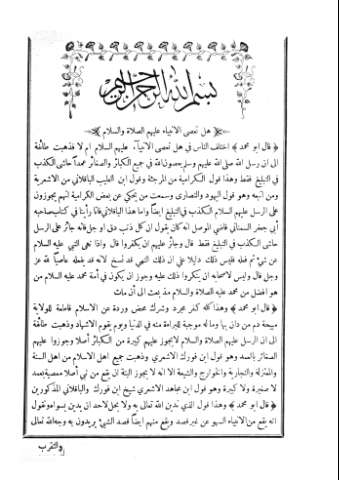 بسم الله الرحمن الرحيم
هل تعصى الانبياء عليهم الصلاة والسلام
﴿ قال ابو محمد ﴾ اختلف الناس في هل تعصى الانبياء عليهم السلام ام لا فذهبت طائفة
الى ان رسل الله صلى الله عليهم وسلم يعصون الله في جميع الكبائر والصغائر عمدا حاشى الكذب
في التبليغ فقط وهذا قول الكرامية من المرجئة وقول ابن الطيب الباقلاني من الاشعرية
ومن اتبعه وهو قول اليهود والنصارى وسمعت من يحكي عن بعض الكرامية انهم يجوزون
على الرسل عليهم السلام الكذب في التبليغ ايضا واما هذا الباقلاني فانا رأينا في كتاب صاحبه
أبي جعفر السمناني قاضي الموصل انه كان يقول ان كل ذنب دق او جل فانه جائز على الرسل
حاشى الكذب في التبليغ فقط قال وجائز عليهم ان يكفروا قال واذا نهى النبي عليه السلام
عن شئ ثم فعله فليس ذلك دليلا على ان ذلك النهي قد نسخ لانه قد يفعله عاصيا لله عز
وجل قال وليس لاصحابه ان ينكروا ذلك عليه وجوز ان يكون في أمة محمد عليه السلام من
هو افضل من محمد عليه الصلاة والسلام مذ بعث الى أن مات
﴿ قال ابو محمد ﴾ وهذا كله كفر مجرد وشرك محض وردة عن الاسلام قاطعة للولاية
مبيحة دم من دان بها وماله موجبة للبراءة منه في الدنيا ويوم يقوم الاشهاد وذهبت طائفة
الى ان الرسل عليهم الصلاة والسلام لا يجوز عليهم كبيرة من الكبائر أصلا وجوزوا عليهم
الصغائر بالعمد وهو قول ابن فورك الاشعري وذهبت جميع اهل الاسلام من اهل السنة
والمعتزلة والنجارية والخوارج والشيعة الا انه لا يجوز البتة ان يقع من نبي أصلا معصية بعمد
لا صغيرة ولا كبيرة وهو قول ابن مجاهد الاشعري شيخ ابن فورك والباقلاني المذكورين
﴿ قال ابو محمد ﴾ وهذا قول الذي ندين الله تعالى به ولا يحل لاحد ان يدين بسواه ونقول
انه يقع من الانبياء السهو عن غير قصد ويقع منهم ايضا قصد الشئ يريدون به وجه الله تعالى
والتقرب